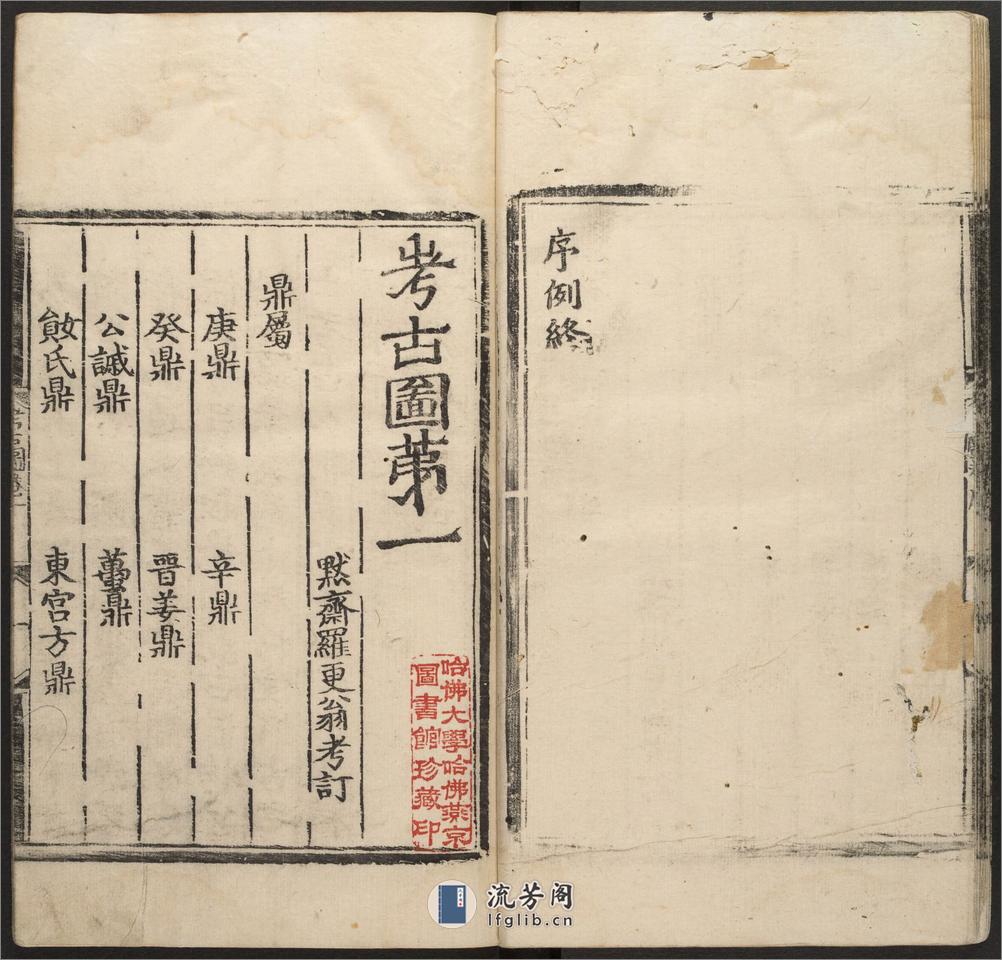 序例終
考古圖第一
默齋羅更翁考訂
鼎屬
庚鼎 辛鼎
癸鼎 晉姜鼎
公諴鼎 䘍鼎
東宮方鼎
考古圖卷一
哈佛大學哈佛燕京
圖書館珍藏印
流芳阁
lfglib.cn